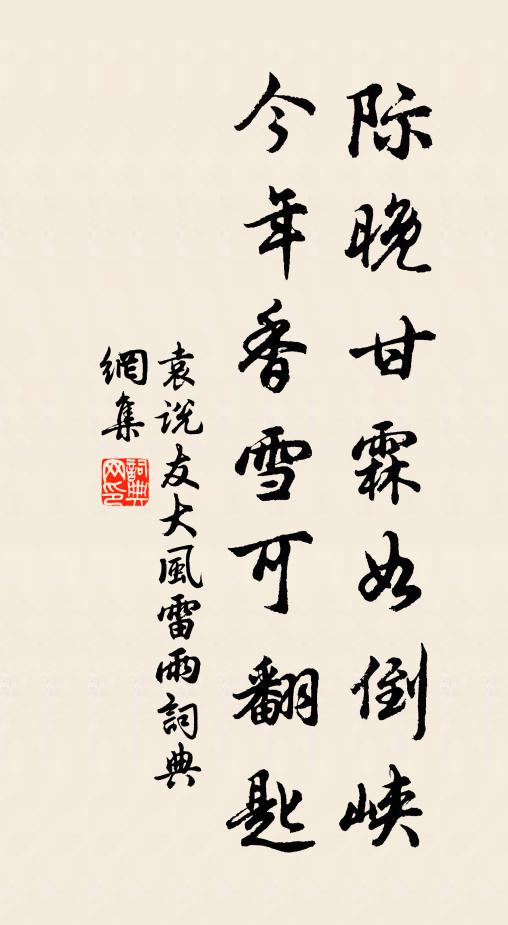 际晚甘霖如倒峡
今年香雪可翻匙
袁说友大風雷雨詞典
網集
詞典
网印